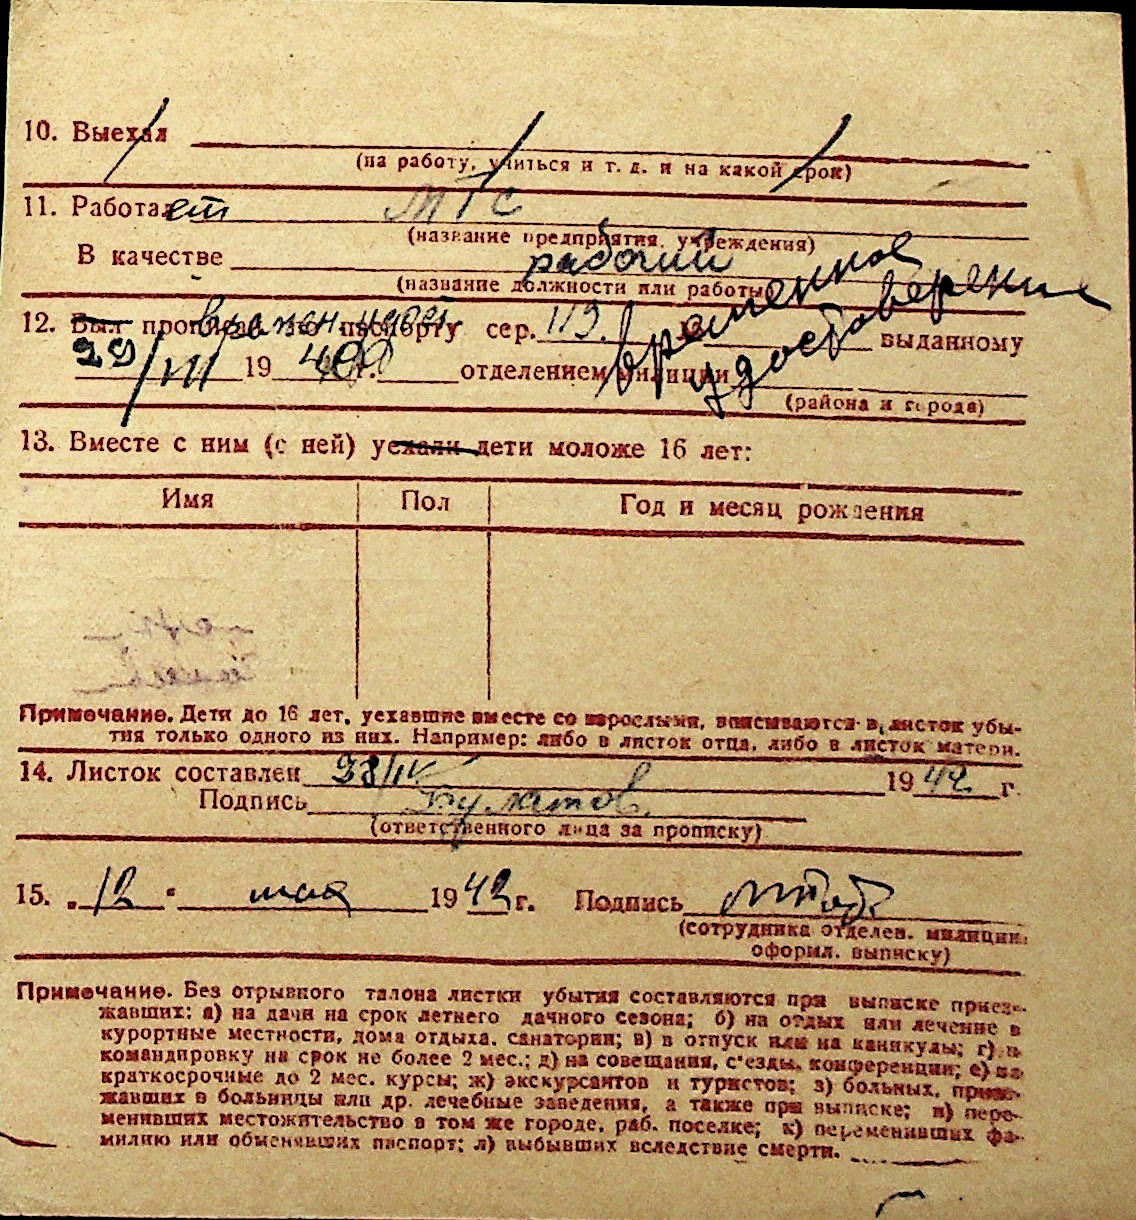 10. Выехал
(на работу, учиться и т. д. и на какой срок)
11. Работает МТС
(название предприятия, учреждения)
В качестве рабочий
(название должности или работы)
12. Был прописан по паспорту сер. 113. временное удостоверение выданному
29/VIII 19 отделением милиции
(района и города)
13. Вместе с ним (с ней) уехали дети моложе 16 лет:
Имя Пол Год и месяц рождения
Примечание. Дети до 16 лет, уехавшие вместе со взрослыми, вписываются в листок убы-
тия только одного из них. Например: либо в листок отца, либо в листок матери.
14. Листок составлен 28/IV 1942 г.
Подпись Булатов.
(ответственного лица за прописку)
15. "12" мая 1942 г. Подпись
(сотрудника отделен. милиции,
оформл. выписку)
Примечание. Без отрывного талона листки убытия составляются при выписке приез-
жавших: а) на дачи на срок летнего дачного сезона; б) на отдых или лечение в
курортные местности, дома отдыха, санатории; в) в отпуск или на каникулы; г) в
командировку на срок не более 2 мес.; д) на совещания, с'езды, конференции; е) на
краткосрочные до 2 мес. курсы; ж) экскурсантов и туристов; з) больных, приез-
жавших в больницы или др. лечебные заведения, а также при выписке; и) пере-
менивших местожительство в том же городе, раб. поселке; к) переменивших фа-
милию или обменявших паспорт; л) выбывших вследствие смерти.